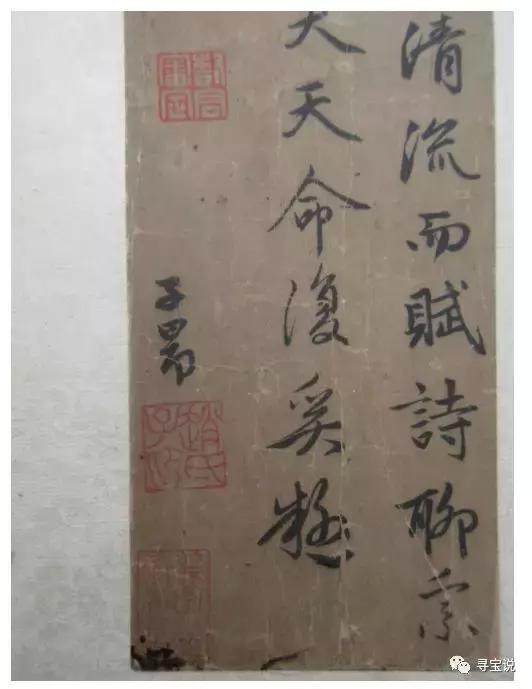 清流而賦詩聊乘
夫天命復奚疑
子昂
趙氏子昂
寻宝说